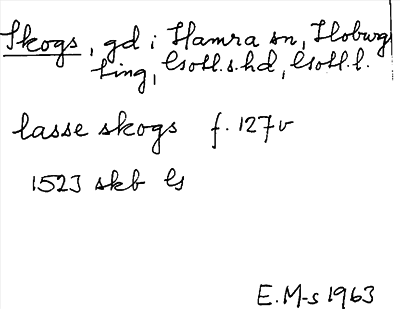 Skogs, gd i Hamra sn, Hoburgs
ting, Gotl.s.hd, Gotl.l.
lasse skogs f. 127v
1523 skb G
E. M-s 1963